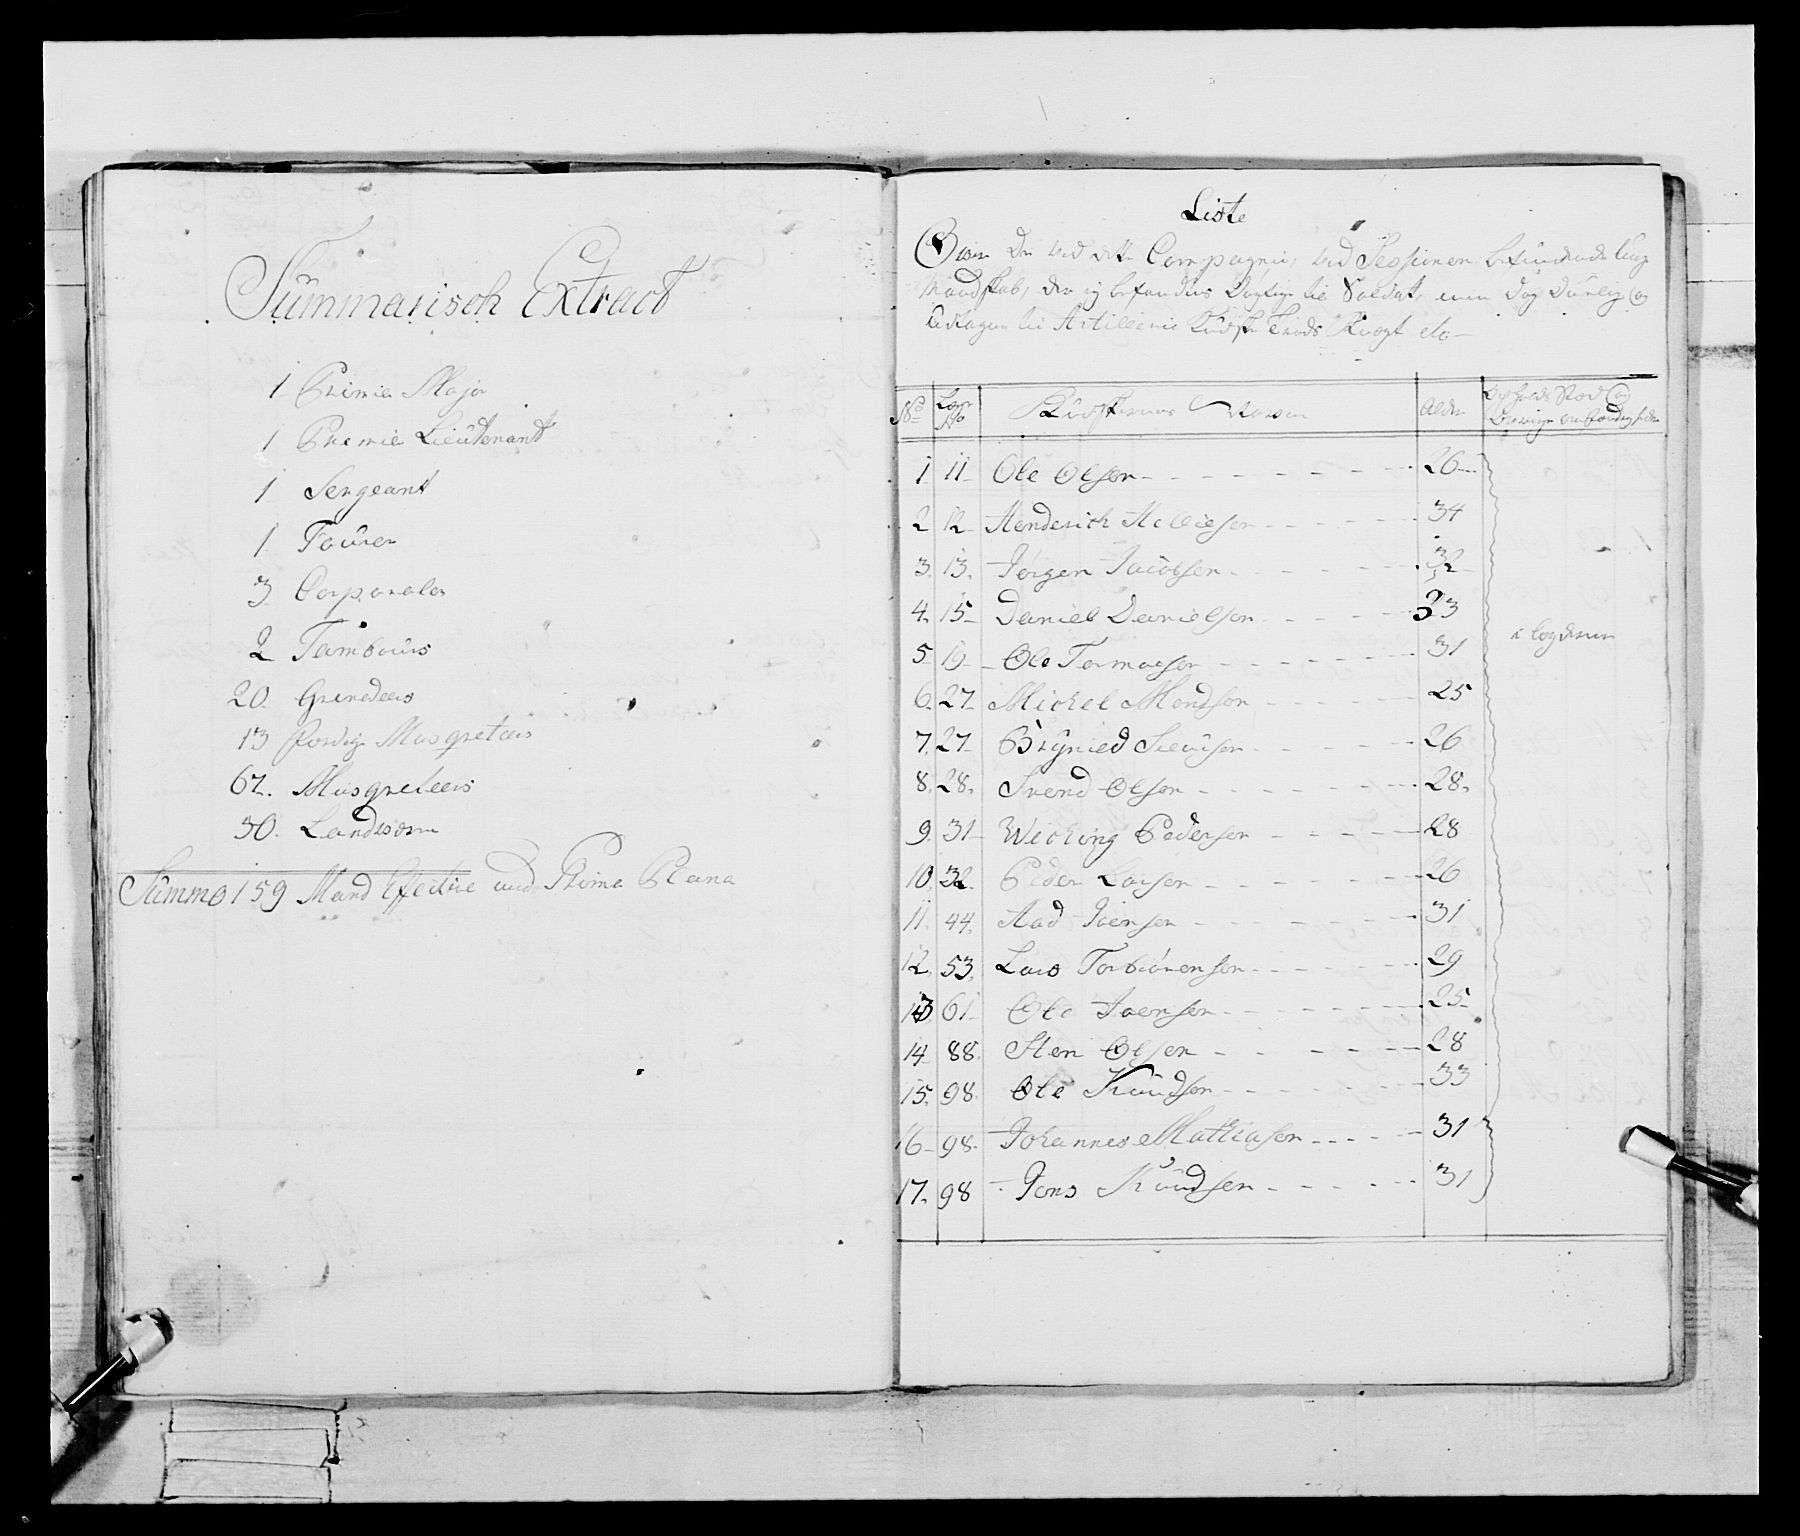 Summarisch Extract
1 Primie Major
1 Premie Lieutenant
1 Sergeant
1 Fourer
3 Corporaler
2 Tambours
20. Grenadeers
13 Musqveteers
67. Musqveteers
50. Landværn
Summa 159 Mand Efective und Prima Plana
Liste
Over De ved dette Compagnie, ved Sessionen befindende Unge
Mandskab, der ej befandtes Dygtige til Soldat, men dog Dürlig og
til Artillerie Kudsk Knegt etc
No Læg No Kudskernes Navne Alder og
1 11 Ole Olsen 26
2 12 Henderich Hellesen 34
3. 13. Jörgen Jacobsen 32
4. 15 Daniel Danielsen 33
5 19 Ole Tormoesen 31
6. 27 Michel Mondsen 25
7. 27 Brÿnied Siversen 26
8. 28. Svend Olsen 28.
9. 31 Wiching Pedersen 28
10. 32. Peder Larsen 26
11. 44. Aad Iversen 31
12. 53. Lars Torbiörensen 29
13 61 Ole Iversen 25
14 88. Sten Olsen 28
15. 98. Ole Knudsen 33
16 98. Johannes Mathiasen 31
17. 98 Jens Knudsen 31